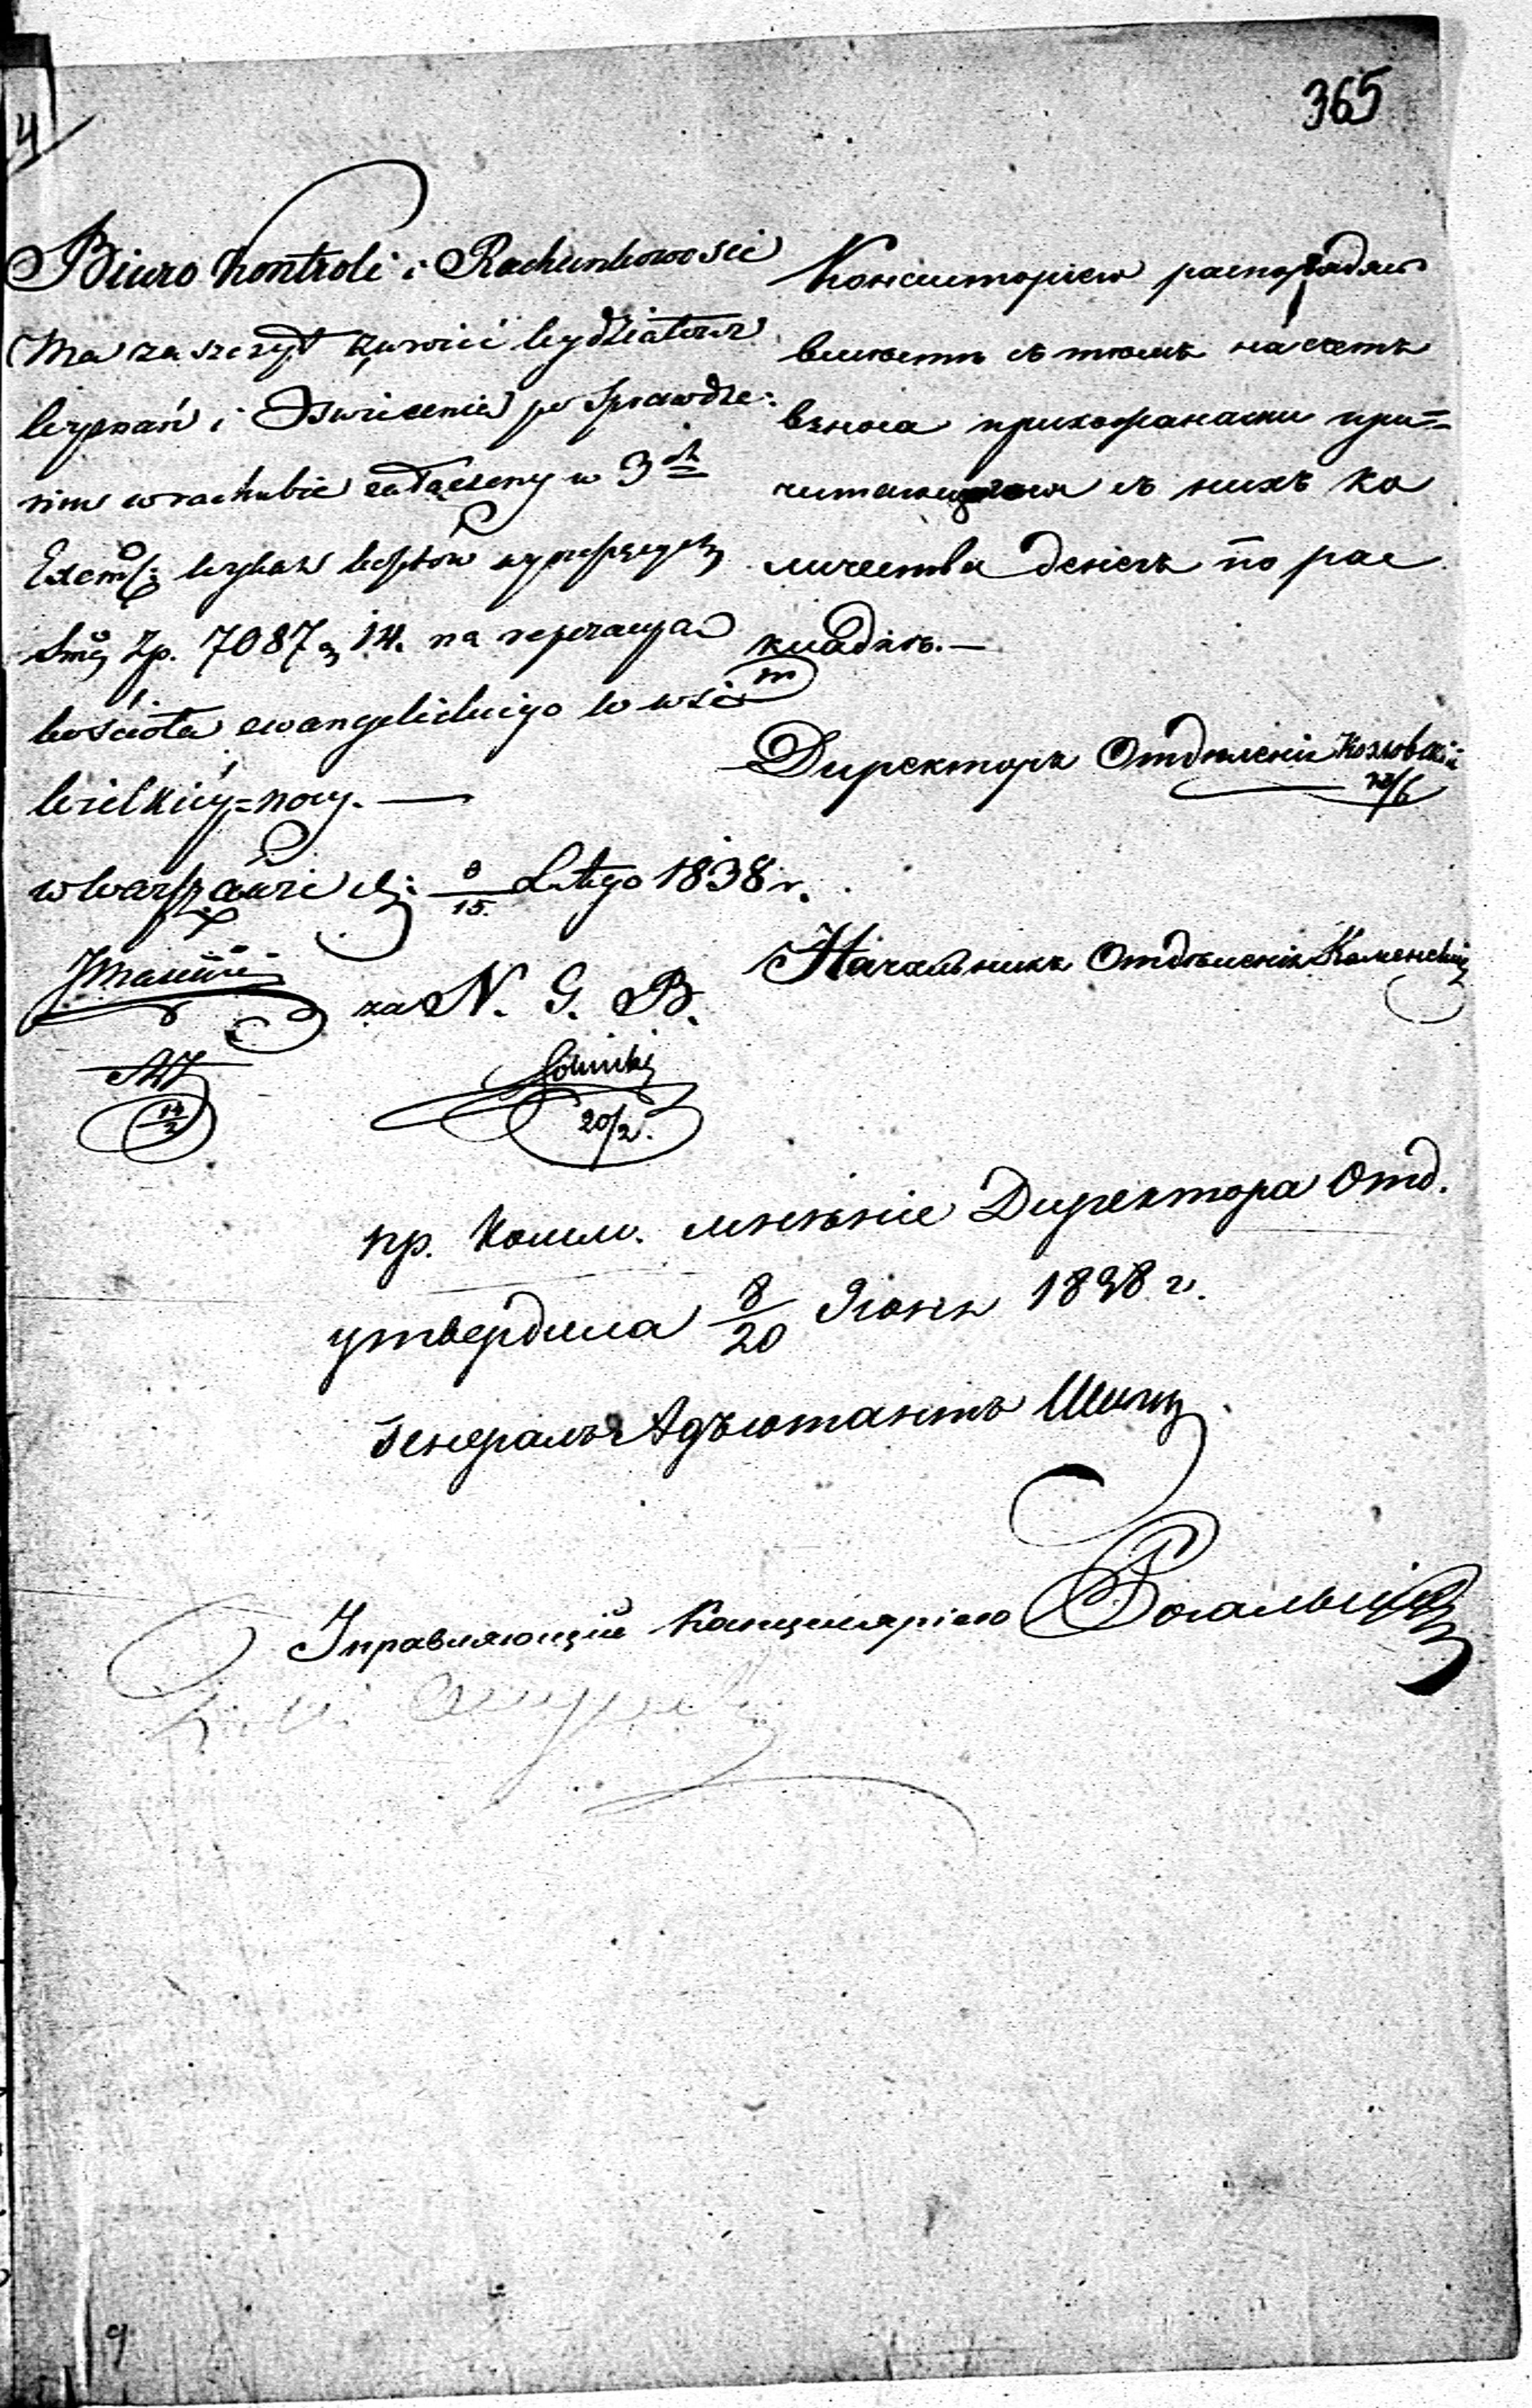 365
4
Biuro Kontroli i Rachunkowości
Ma zaszczyt zwrócić Wydziałowi
Wyznań i Oświecenia po sprawdze:
niu w rachubie załączony w 3ch
Exempl: wykaz kosztów wynoszących
Summę Zp. 7087 g 14. na reperacyą
kościoła ewangelickiego w wsi
Wielkiéy=nocy. —
w Warszawie d: 3/15. Lutego 1838 r.
za N. G. B.
14/2
20/2.
Консисторіею распоряди
вмѣстѣ съ тѣмъ насчетъ
взноса прихожанами при=
читающагося съ нихъ ко
личества денегъ по рас
кладкѣ. —
Директоръ Отдѣленія Козловскій
Начальникъ Отдѣленія Каменскій
пр. Комм. мнѣніе Директора Отд.
утвердила 8/20 Іюня 1838 г.
Генералъ Адъютантъ Шиповъ
Управляющій Канцеляріею